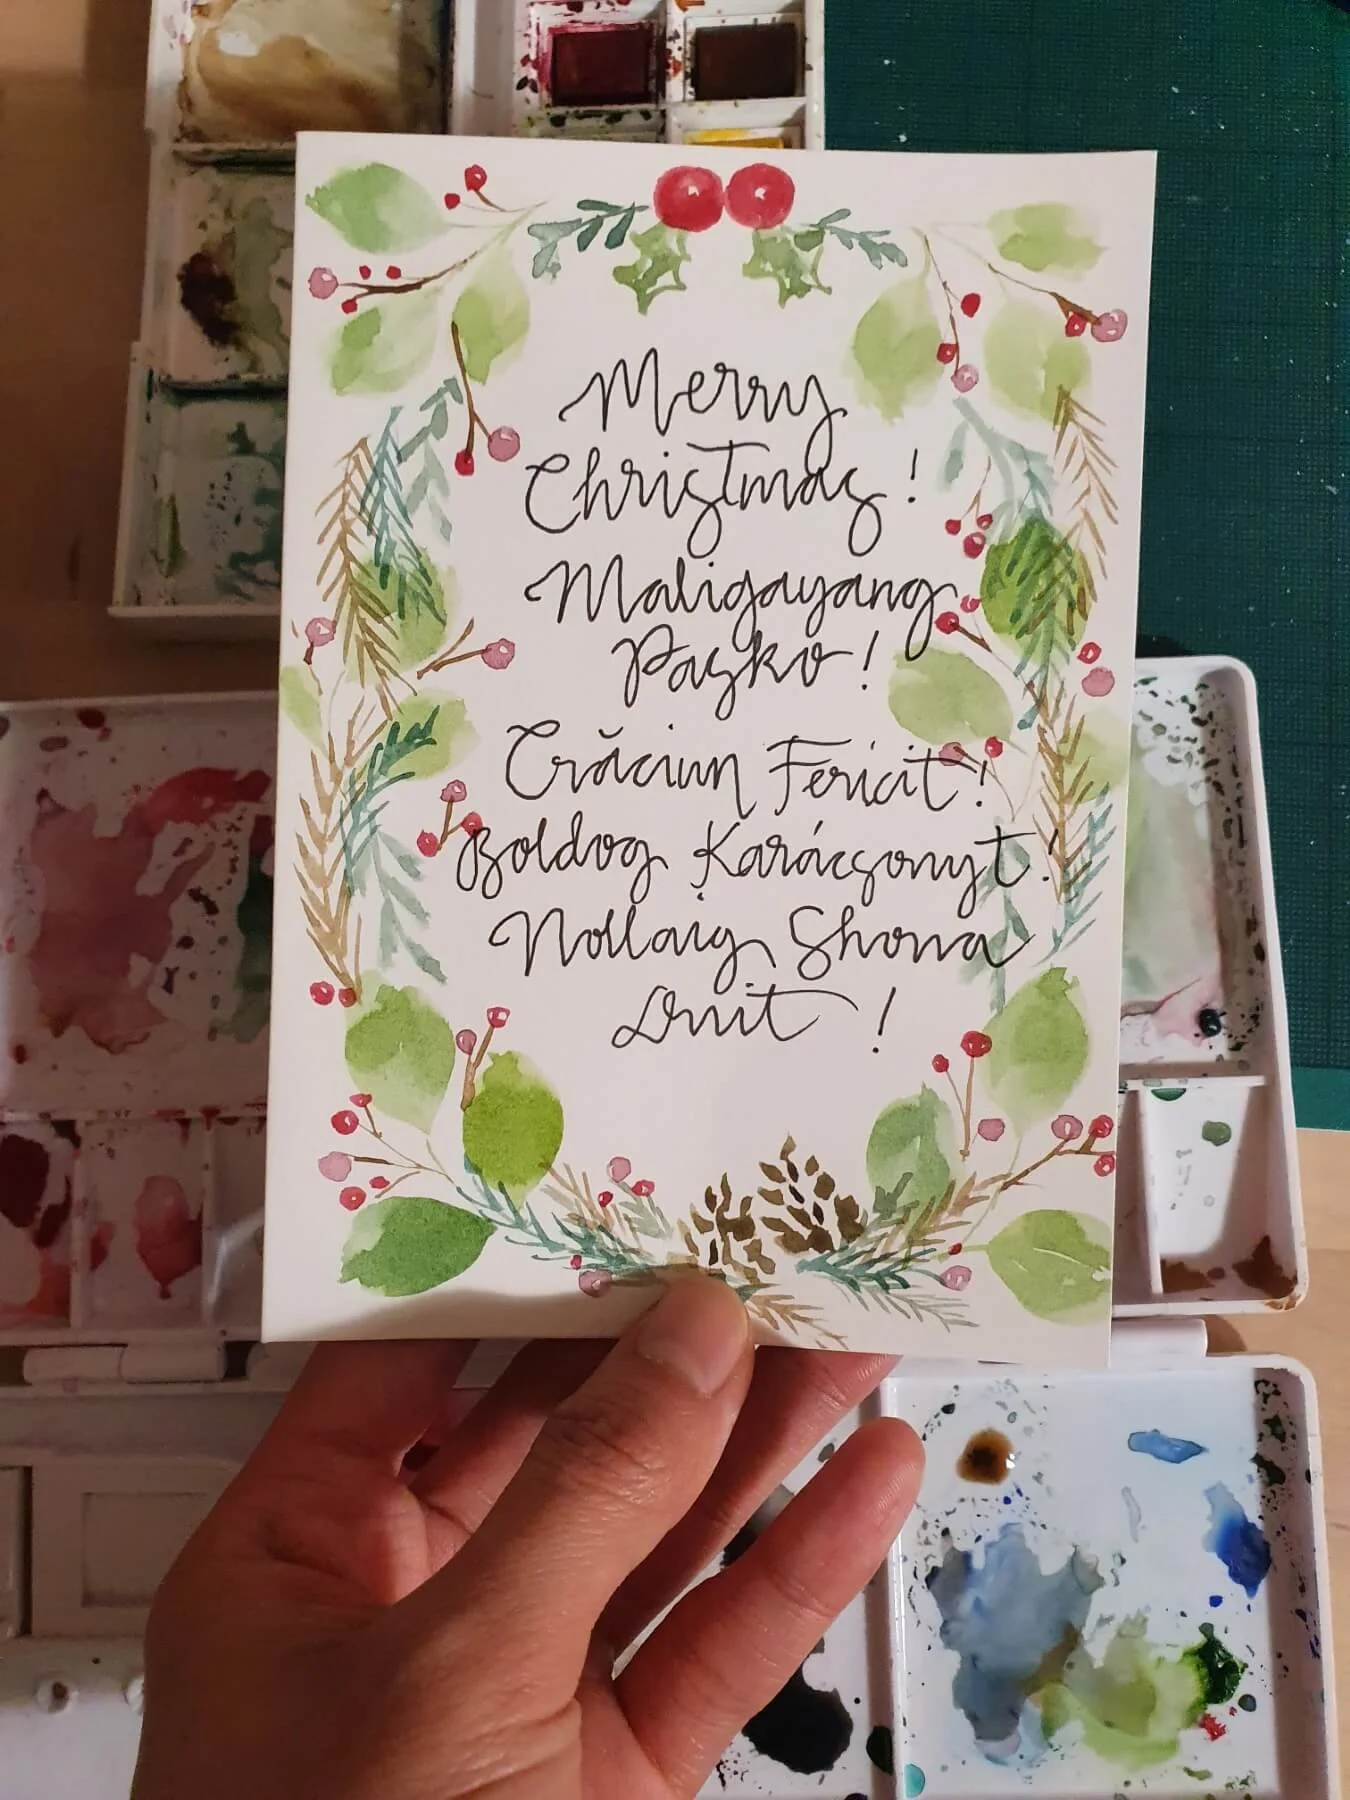 Merry
Christmas!
Maligayang
Pasko!
Crăciun Fericit!
Boldog Karácsonyt!
Nollaig Shona
Duit!